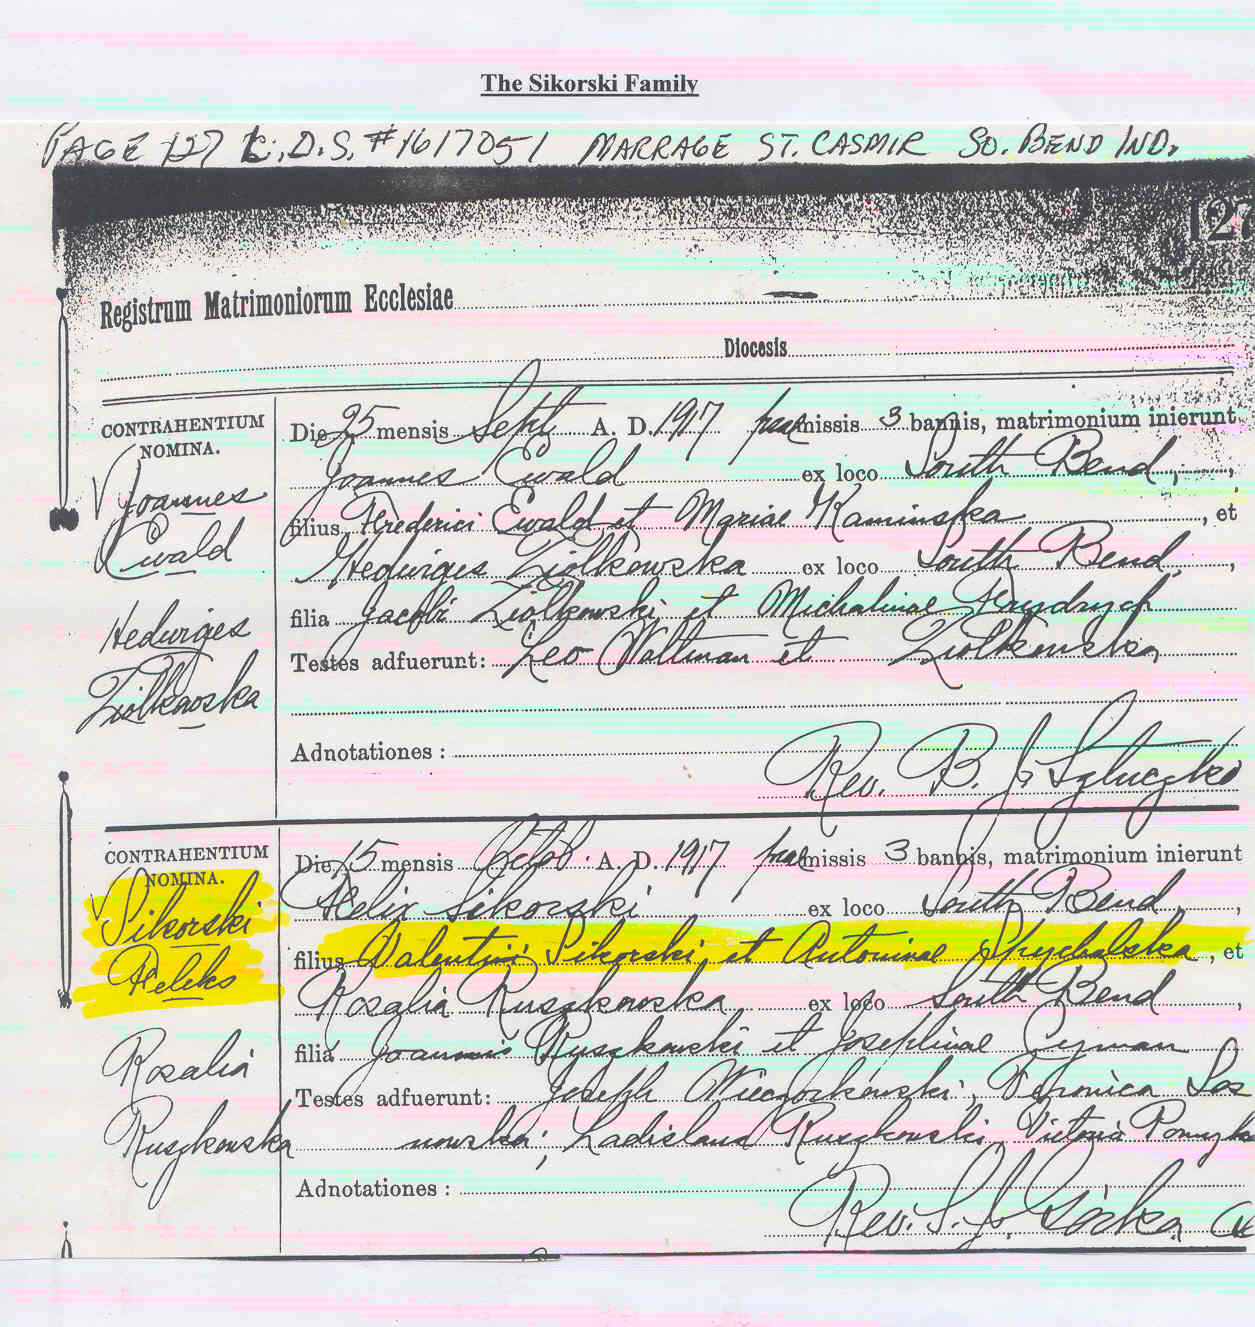 The Sikorski Family
PAGE 127 L.D.S. #1617051 MARRAGE ST. CASMIR SO. BEND IND.
127
Registrum Matrimoniorum Ecclesiae
Diocesis
CONTRAHENTIUM
NOMINA.
Joannes
Ewald
Hedwiges
Ziolkowska
Die 25 mensis Sept A. D. 1917 praemissis 3 bannis, matrimonium inierunt
Joannes Ewald ex loco South Bend,
filius Frederici Ewald et Mariae Kaminska, et
Hedwiges Ziolkowska ex loco South Bend,
filia Jacobi Ziolkowski et Michalinae Frydrych
Testes adfuerunt: Leo Waltman et Ziolkowska
Adnotationes:
Rev. B. J. Sztuczko
CONTRAHENTIUM
NOMINA.
Sikorski
Feleks
Rosalia
Ruszkowska
Die 15 mensis Octob. A. D. 1917 praemissis 3 bannis, matrimonium inierunt
Felix Sikorski ex loco South Bend,
filius Valentini Sikorski, et Antoninae, et
Rosalia Ruszkowska, ex loco South Bend,
filia Joannis Ruszkowski et Josephinae Cyman
Testes adfuerunt: Joseph Wieczorkowski, Veronica Sos
nowska; Ladislaus Ruszkowski, Victoria
Adnotationes:
Rev. S. J. Gorka